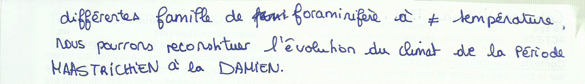 différentes famille de foraminifère à ≠ température,
nous pourrons reconstituer l'évolution du climat de la période
MAASTRICHIEN à la DAMIEN.